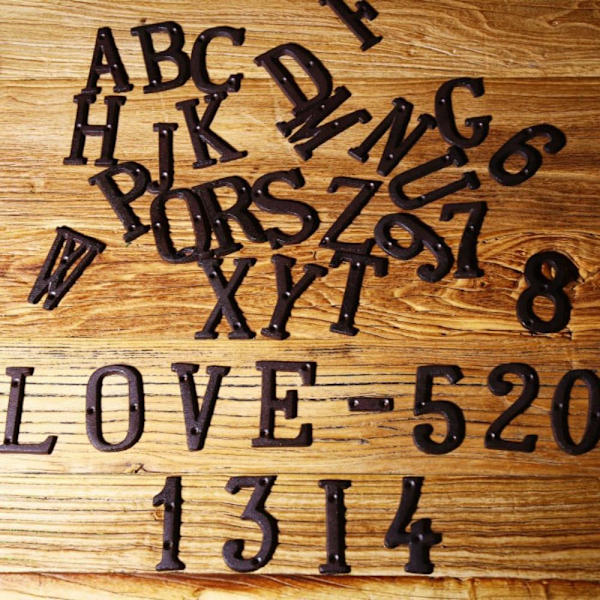 F
A B C D
H J K M N G 6
P Q R S Z U
9 7
W X Y T 8
LOVE-520
13I4